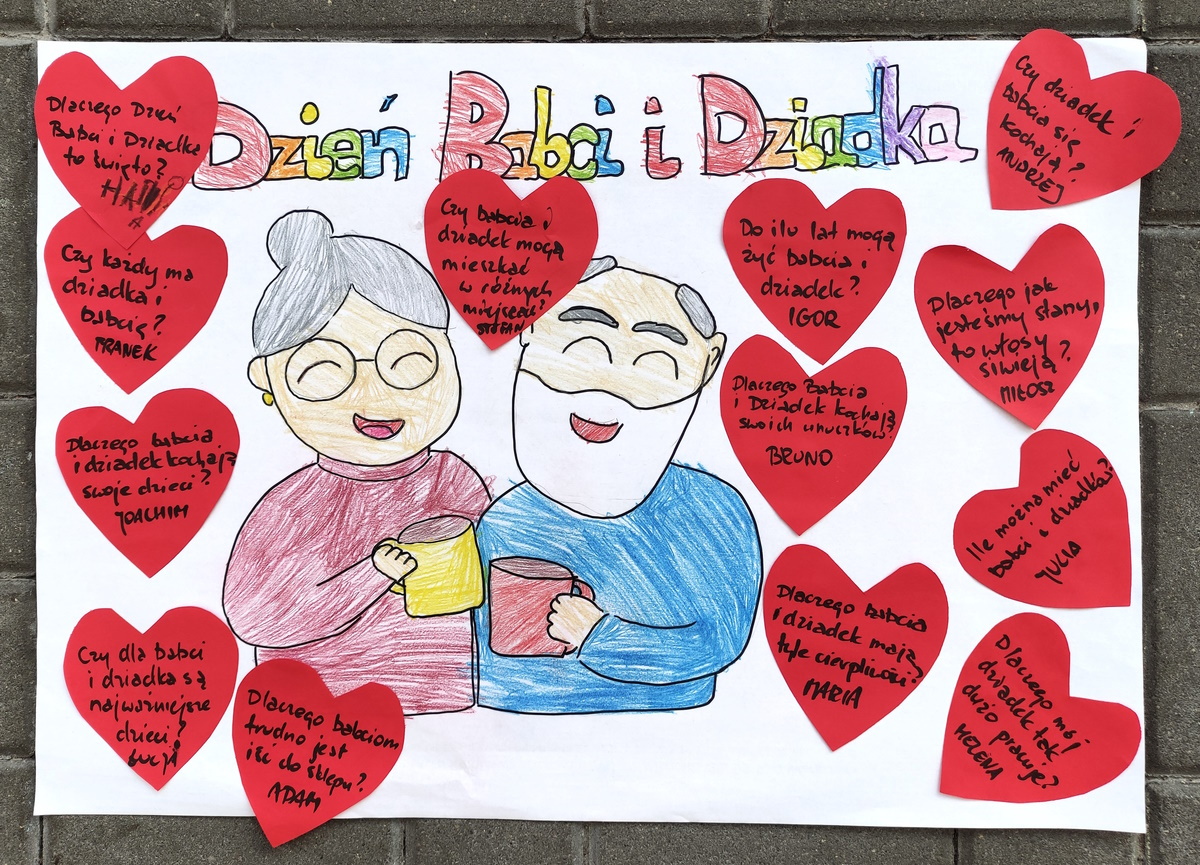 Dzień Babci i Dziadka
Dlaczego Dzień
Babci i Dziadka
to święto?
Czy dziadek i
babcia się
kochają?
ANDRZEJ
Czy babcia i
dziadek mogą
mieszkać
w różnych
miejscach?
STEFAN
Do ilu lat mogą
żyć babcia i
dziadek?
IGOR
Czy każdy ma
dziadka i
babcię?
FRANEK
Dlaczego jak
jesteśmy starzy,
to włosy
siwieją?
MIŁOSZ
Dlaczego Babcia
i Dziadek kochają
swoich wnuczków?
BRUNO
Dlaczego babcia
i dziadek kochają
swoje dzieci?
JOACHIM
Ile można mieć
babci i dziadków?
JULIA
Dlaczego babcia
i dziadek mają
tyle cierpliwości?
MARIA
Czy dla babci
i dziadka są
najważniejsze
dzieci?
ŁUCJA
Dlaczego babciom
trudno jest
iść do sklepu?
ADAM
Dlaczego mój
dziadek tak
dużo pracuje?
HELENA